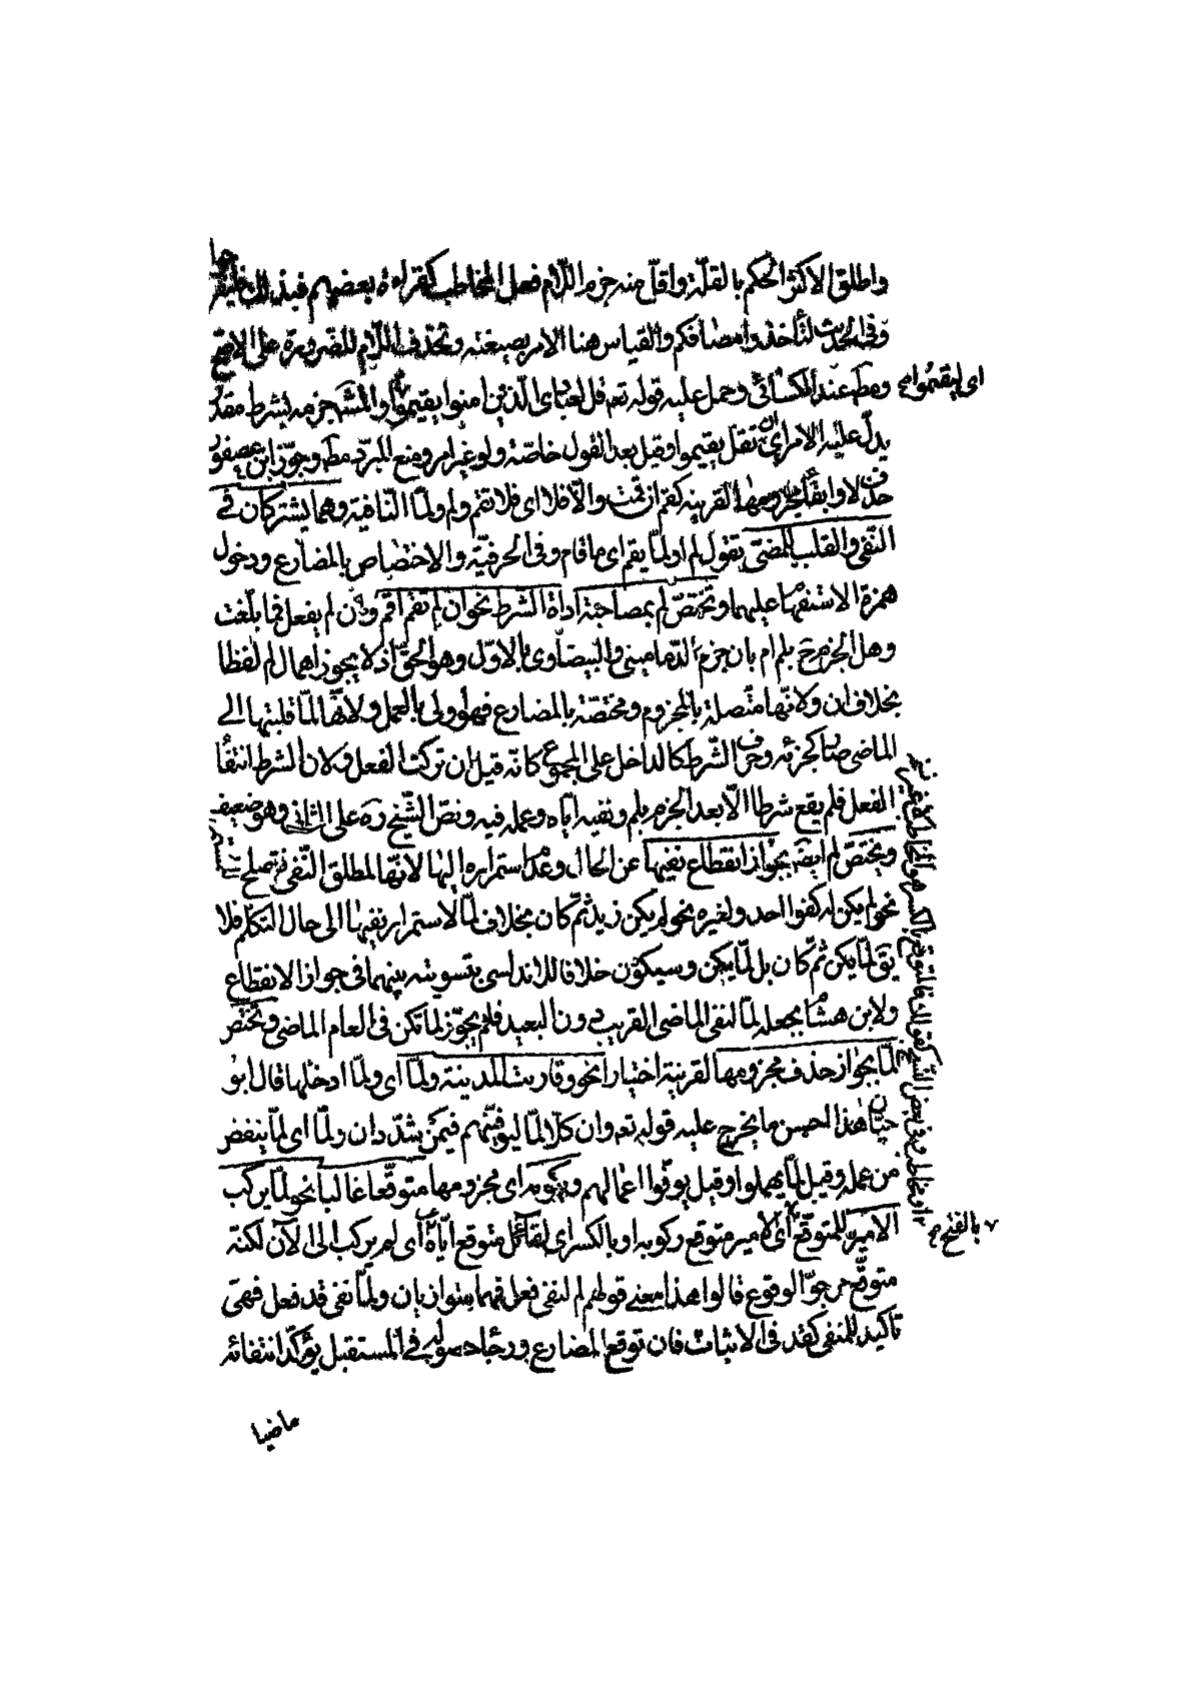 واطلق الاكثر الحكم بالقلّة واقلّ منه جزم اللّام فعل المخاطب كقراءة بعضهم فبذلك فلتفرحوا
وفى الحديث لتأخذوا مصافكم والقياس هنا الامر بصيغته وتحذف اللّام للضرورة على الاصح
ومطه عند الكسائى وحمل عليه قوله تعه قل لعبادى الّذين امنوا يقيموا والمشهـ جزمه بشرط مقدّر
اى ليقيموا
يدلّ عليه الامر اى ان تقل يقيموا وقيل بعد القول خاصّة ولو غير امر ومنع المبرّد مطه وجوّز ابن عصفور
حذف لا وابقاء مجزومها لقرينه كقم ان قمت والّا فلا اى فلا تقم ولم ولمّا النّافية وهما يشتركان فى
النّفى والقلب للمضىّ تقول لم او لمّا يقم اى ما قام وفى الحرفيّة والاختصاص بالمضارع ودخول
همزة الاستفهام عليهما وتختصّ لم بمصاحبة اداة الشرط نحو ان لم تقم اقم وان لم يفعل فما بلّغت
وهل الجزم ح بلم ام بان جزم الدّمامينى والبيضاوى بالاوّل وهو الحقّ اذ لا يجوز اهمال لم لفظا
بخلاف ان ولانّها متّصلة بالمجزوم ومختصّة بالمضارع فهى اولى بالعمل ولانّها لمّا قلبتها الى
الماضى صارت كجزئه وحرف الشّرط كالداخل على المجموع كانّه قيل ان تركت الفعل ولان الشرط انتفاء
الفعل فلم يقع شرطا الّا بعد الجزم بلم ونفيه ايّاه وعمله فيه ونصّ الشّيخ ره على الثانى وهو ضعيف
ويختصّ لم ايضه بجواز انقطاع نفيها عن الحال وعدم استمراره اليها لانّها لمطلق النّفى فتصلح
نحو لم يكن له كفوا احد ولغيره نحو لم يكن زيد ثمّ كان بخلاف لمّا لاستمرار نفيها الى حال التكلّم فلا
يق لمّا يكن ثمّ كان بل لمّا يكن وسيكون خلافا للاندلسى بتسويته بينهما فى جواز الانقطاع
ولابن هشام بجعله لمّا لنفى الماضى القريب دون البعيد فلم يجوّز لمّا تكن فى العام الماضى وتختصّ
لمّا بجواز حذف مجزومها لقرينة اختيارا نحو قاربت المدينة ولمّا اى ولمّا ادخلها قال ابو
حيّان هذا احسن ما يخرج عليه قوله تعه وان كلّا لمّا ليوفّينّهم فيمن شدّد ان ولمّا اى لمّا ينقص
من عمله وقيل لمّا يهملوا وقيل يوفّوا اعمالهم وبكونه اى مجزومها متوقّعا غالبا نحو لمّا يركب
الامير للمتوقّع اى لامير متوقع ركوبه او بالكسر اى لقائل متوقع ايّاه اى لم يركب الى الآن لكنّه
بالفتح
متوقّع مرجوّ الوقوع قالوا هذا معنى قولهم لم لنفى فعل فهما متوازيان ولمّا نفى قد فعل فهى
تاكيد للمنفى كقد فى الاثبات فان توقع المضارع ورجاء حصوله فى المستقبل يؤكّد انتفائه
ماضيا